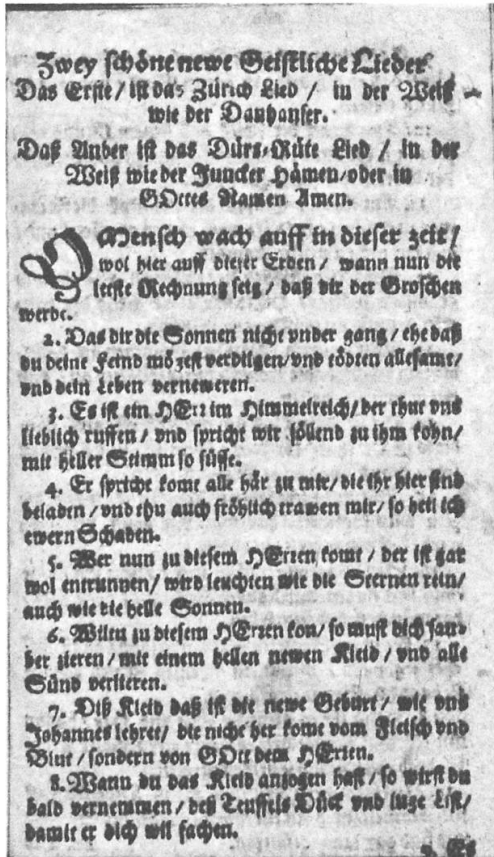 Zwey schöne newe Geistliche Lieder
Das Erste / ist das Zürich Lied / in der Weiß
wie der Danhauser.
Daß Ander ist das Dürs-Rüte Lied / in der
Weiß wie der Juncker Hämen / oder in
GOttes Namen Amen.
O Mensch wach auff in dieser zeit /
wol hier auff dieser Erden / wann nun die
letste Rechnung seig / daß dir der Groschen
werde.
2. Das dir die Sonnen nicht vnder gang / ehe daß
du deine Feind mögest verdilgen / vnd tödten allesame /
vnd dein Leben verneweren.
3. Es ist ein HErr im Himmelreich / der thut vns
lieblich ruffen / vnd spricht wir söllend zu ihm kohn /
mit heller Stimm so süsse.
4. Er spricht kome alle här zu mir / die ihr hier sind
beladen / vnd thu auch fröhlich trawen mir / so heil ich
ewern Schaden.
5. Wer nun zu diesem HErren komt / der ist gar
wol entrunnen / wird leuchten wie die Sternen rein /
auch wie die helle Sonnen.
6. Wiltu zu diesem HErren kon / so must dich sau-
ber zieren / mit einem hellen newen Kleid / vnd alle
Sünd verlieren.
7. Diß Kleid daß ist die newe Geburt / wie vns
Johannes lehret / die nicht her komt vom Fleisch vnd
Blut / sondern von GOtt dem HErren.
8. Wann du das Kleid anzogen hast / so wirst du
bald vernemmen / deß Teuffels Dück vnd luge List /
damit er dich wil fachen.
9. Es